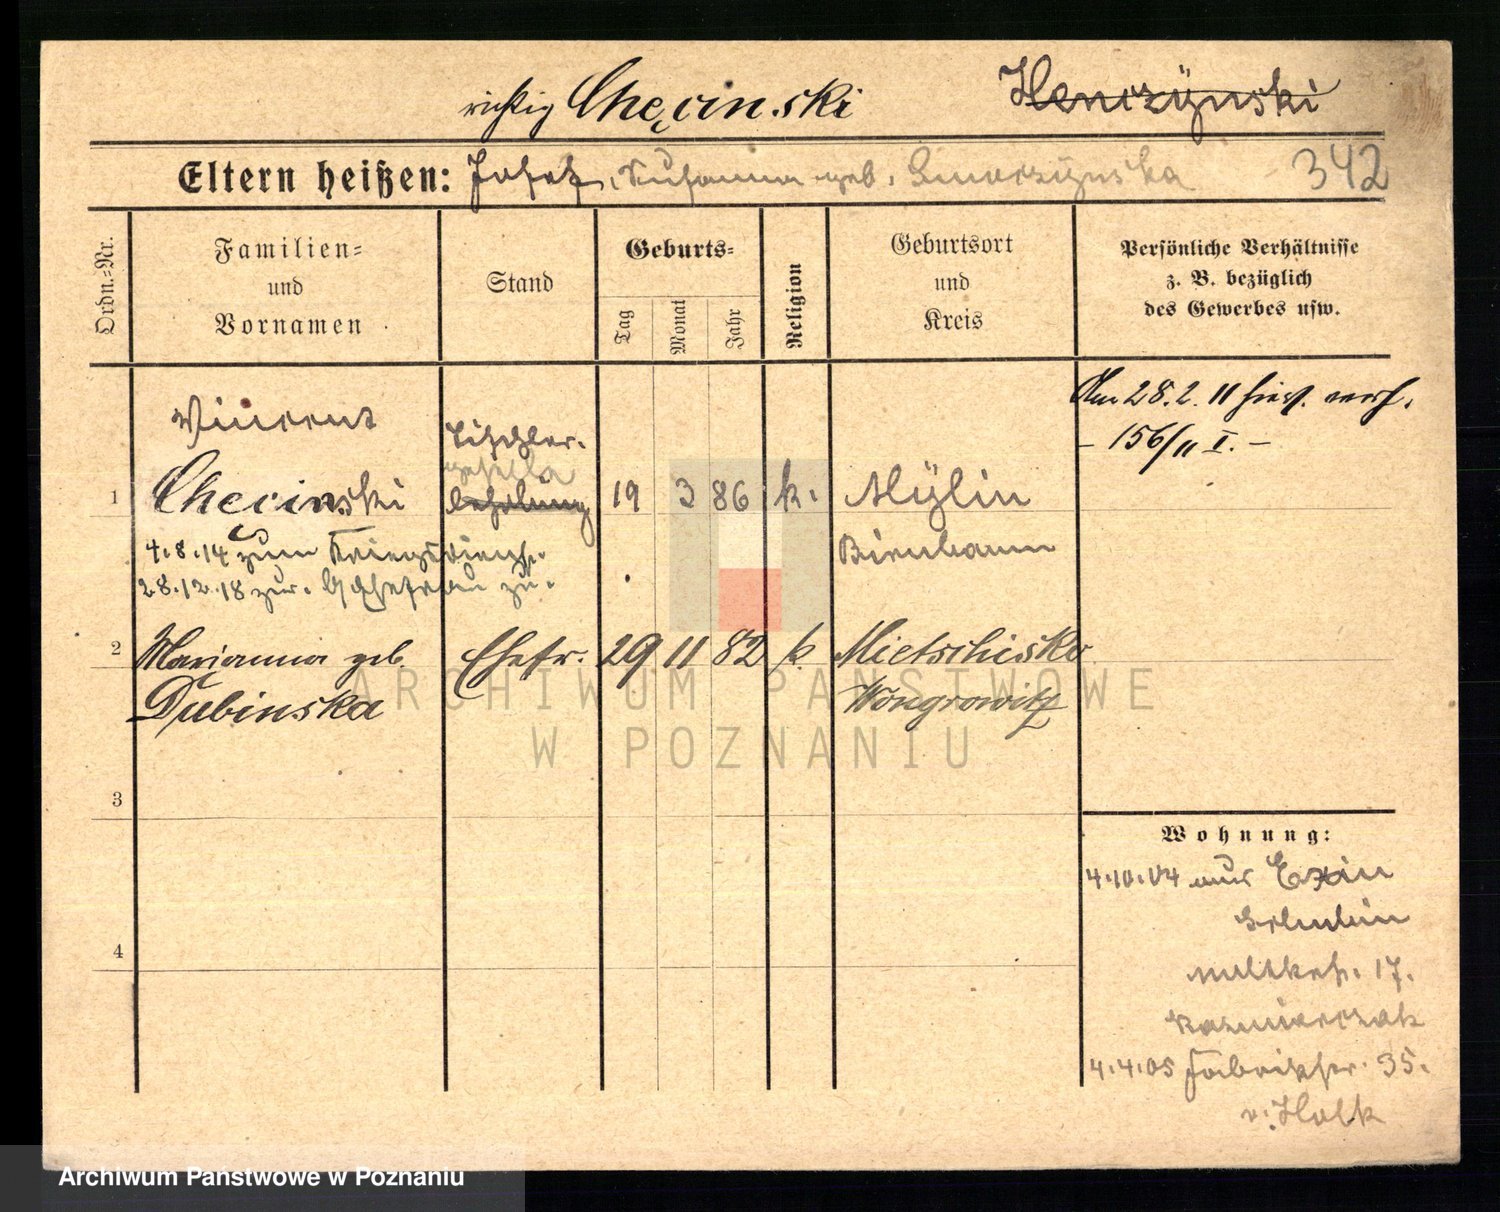 richtig Chęcinski Henczÿnski
Eltern heißen: Josef, Susanna geb. 342
Ordn.-Nr.
Familien-
und
Vornamen
Stand
Geburts-
Tag
Monat
Jahr
Religion
Geburtsort
und
Kreis
Persönliche Verhältnisse
z. B. bezüglich
des Gewerbes usw.
Am 28.2.11 hier verh.
- 156/11 I. -
Vincent
Tischler-
geselle
1 Chęcinski Lehrling 19 3 86 k. Mÿlin
4.8.14 zum Kriegsdienst. Birnbaum
28.12.18 zur. Ehefrau zu.
2 Marianna geb. Ehefr. 29 11 82 k. Mietschisko
Dubinska Wongrowitz
3
4
Wohnung:
4.10.04 aus Exin
Schubin
Moltkestr. 17.
Kazmierczak
4.4.05 Fabrikstr. 35.
ARCHIWUM PAŃSTWOWE
W POZNANIU
Archiwum Państwowe w Poznaniu